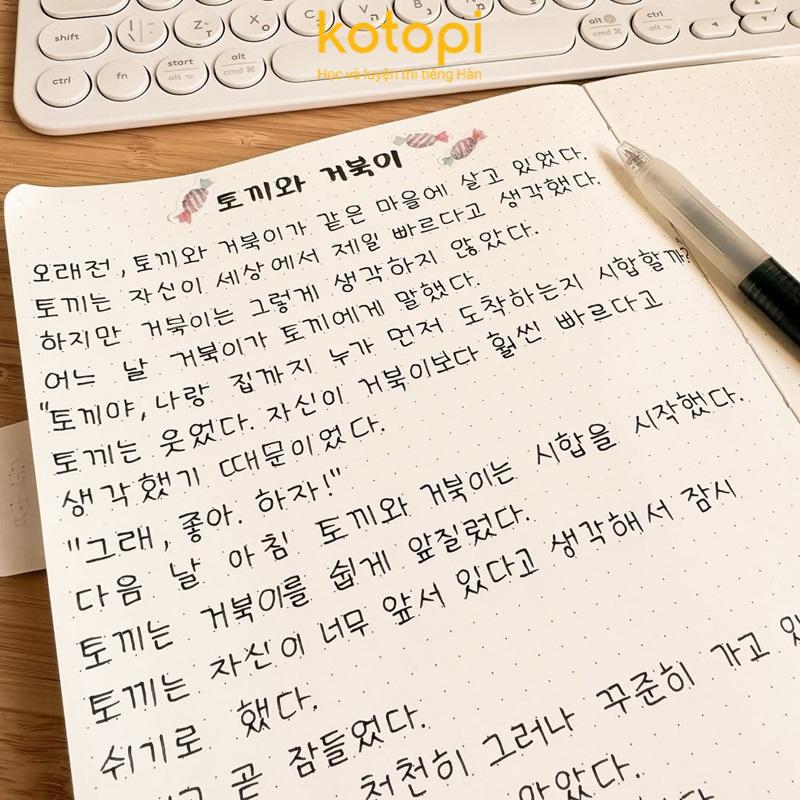 kotopi
Học và luyện thi tiếng Hàn
shift
Z
X
C
V
B
N
alt
ctrl
ctrl
fn
start
alt
alt
cmd ⌘
토끼와 거북이
오래전, 토끼와 거북이가 같은 마을에 살고 있었다.
토끼는 자신이 세상에서 제일 빠르다고 생각했다.
하지만 거북이는 그렇게 생각하지 않았다.
어느 날 거북이가 토끼에게 말했다.
"토끼야, 나랑 집까지 누가 먼저 도착하는지 시합할까?
토끼는 웃었다. 자신이 거북이보다 훨씬 빠르다고
생각했기 때문이었다.
"그래, 좋아. 하자!"
다음 날 아침 토끼와 거북이는 시합을 시작했다.
토끼는 거북이를 쉽게 앞질렀다.
토끼는 자신이 너무 앞서 있다고 생각해서 잠시
쉬기로 했다.
곧 잠들었다.
천천히 그러나 꾸준히 가고